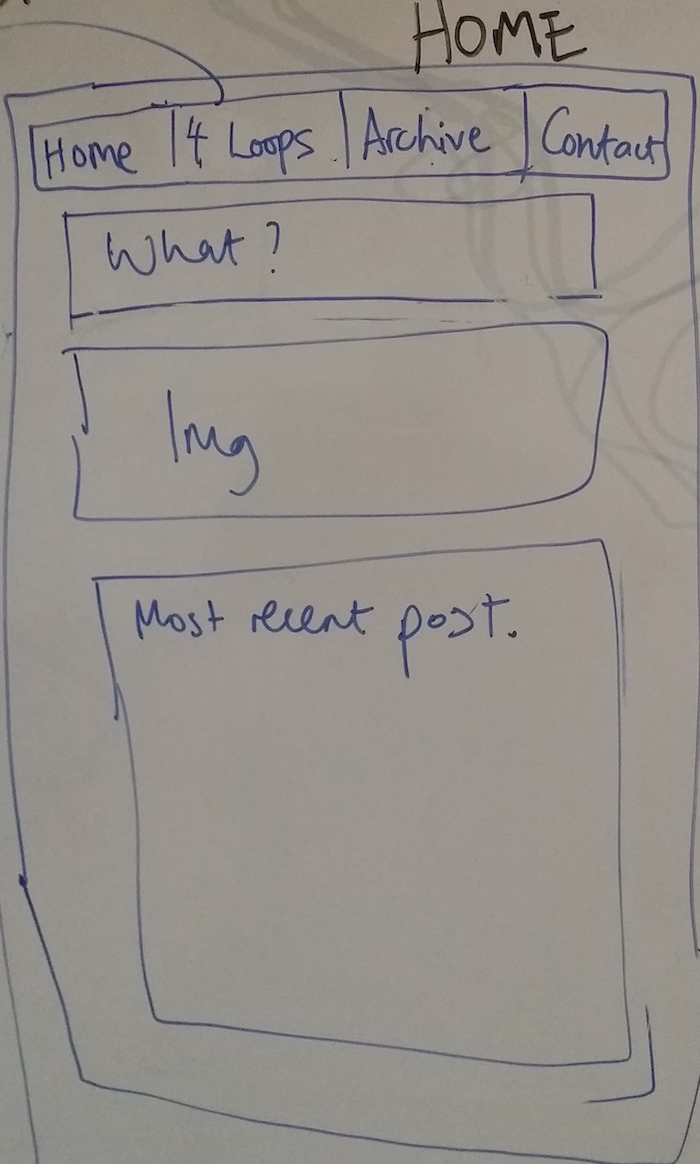 HOME
Home 4 Loops Archive Contact
What?
Img
Most recent post.